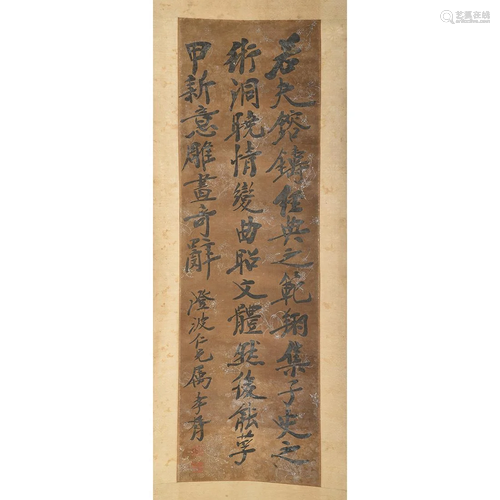 若夫鎔鑄經典之範翔集子史之
術洞曉情變曲昭文體然後能莩
甲新意雕畫奇辭
澄波仁兄屬李
艺狐在线